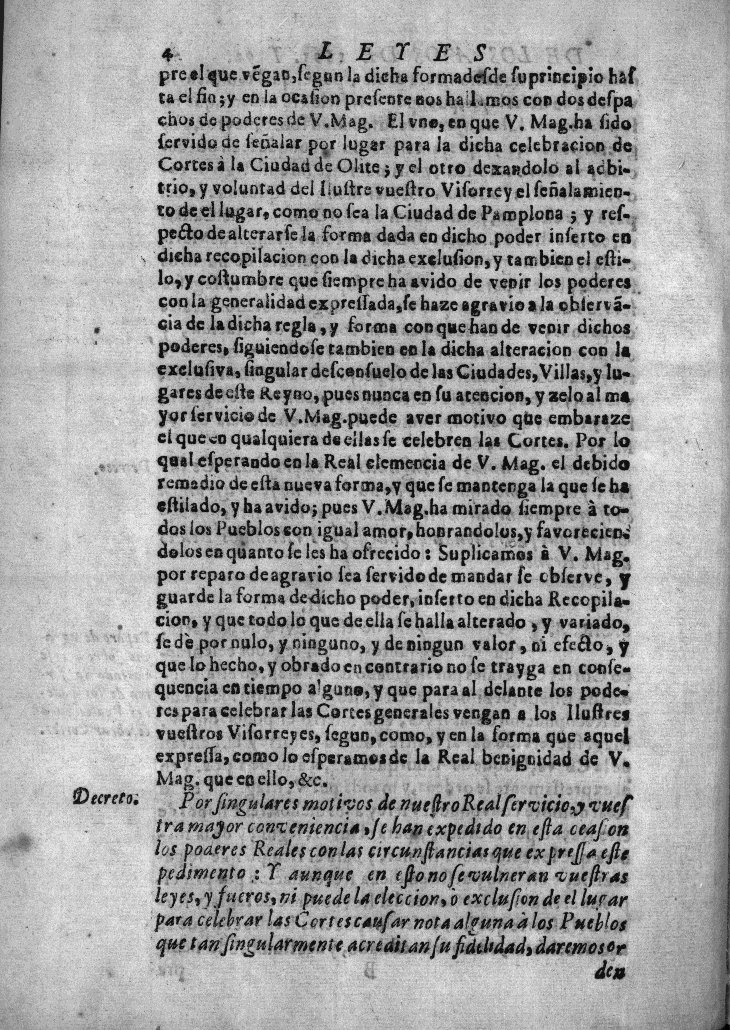 4 LEYES
pre el que vēgan, segun la dicha forma desde su principio has
ta el fin; y en la ocasion presente nos hallamos con dos despa
chos de poderes de V. Mag. El vno, en que V. Mag. ha sido
servido de señalar por lugar para la dicha celebracion de
Cortes à la Ciudad de Olite; y el otro dexandolo al adbi-
trio, y voluntad del Ilustre vuestro Visorrey el señalamien-
to de el lugar, como no sea la Ciudad de Pamplona; y res-
pecto de alterarse la forma dada en dicho poder inserto en
dicha recopilacion con la dicha exclusion, y tambien el esti-
lo, y costumbre que siempre ha avido de venir los poderes
con la generalidad expressada, se haze agravio a la observā-
cia de la dicha regla, y forma con que han de venir dichos
poderes, siguiendose tambien en la dicha alteracion con la
exclusiva, singular desconsuelo de las Ciudades, Villas, y lu-
gares de este Reyno, pues nunca en su atencion, y zelo al ma
yor servicio de V. Mag. puede aver motivo que embaraze
el que en qualquiera de ellas se celebren las Cortes. Por lo
qual esperando en la Real clemencia de V. Mag. el debido
remadio de esta nueva forma, y que se mantenga la que se ha
estilado, y ha avido; pues V. Mag. ha mirado siempre à to-
dos los Pueblos con igual amor, honrandolos, y favorecien-
dolos en quanto se les ha ofrecido: Suplicamos à V. Mag.
por reparo de agravio sea servido de mandar se observe, y
guarde la forma de dicho poder, inserto en dicha Recopila-
cion, y que todo lo que de ella se halla alterado, y variado,
se dè por nulo, y ninguno, y de ningun valor, ni efecto, y
que lo hecho, y obrado en contrario no se trayga en conse-
quencia en tiempo alguno, y que para al delante los pode-
res para celebrar las Cortes generales vengan a los Ilustres
vuestros Visorreyes, segun, como, y en la forma que aquel
expressa, como lo esperamos de la Real benignidad de V.
Mag. que en ello, &c.
Decreto. Por singulares motivos de nuestro Real servicio, y vues
tra mayor conveniencia, se han expedido en esta ocasion
los poderes Reales con las circunstancias que expressa este
pedimento: Y aunque en esto no se vulneran vuestras
leyes, y fueros, ni puede la eleccion, o exclusion de el lugar
para celebrar las Cortes causar nota alguna à los Pueblos
que tan singularmente acreditan su fidelidad, daremos or
den